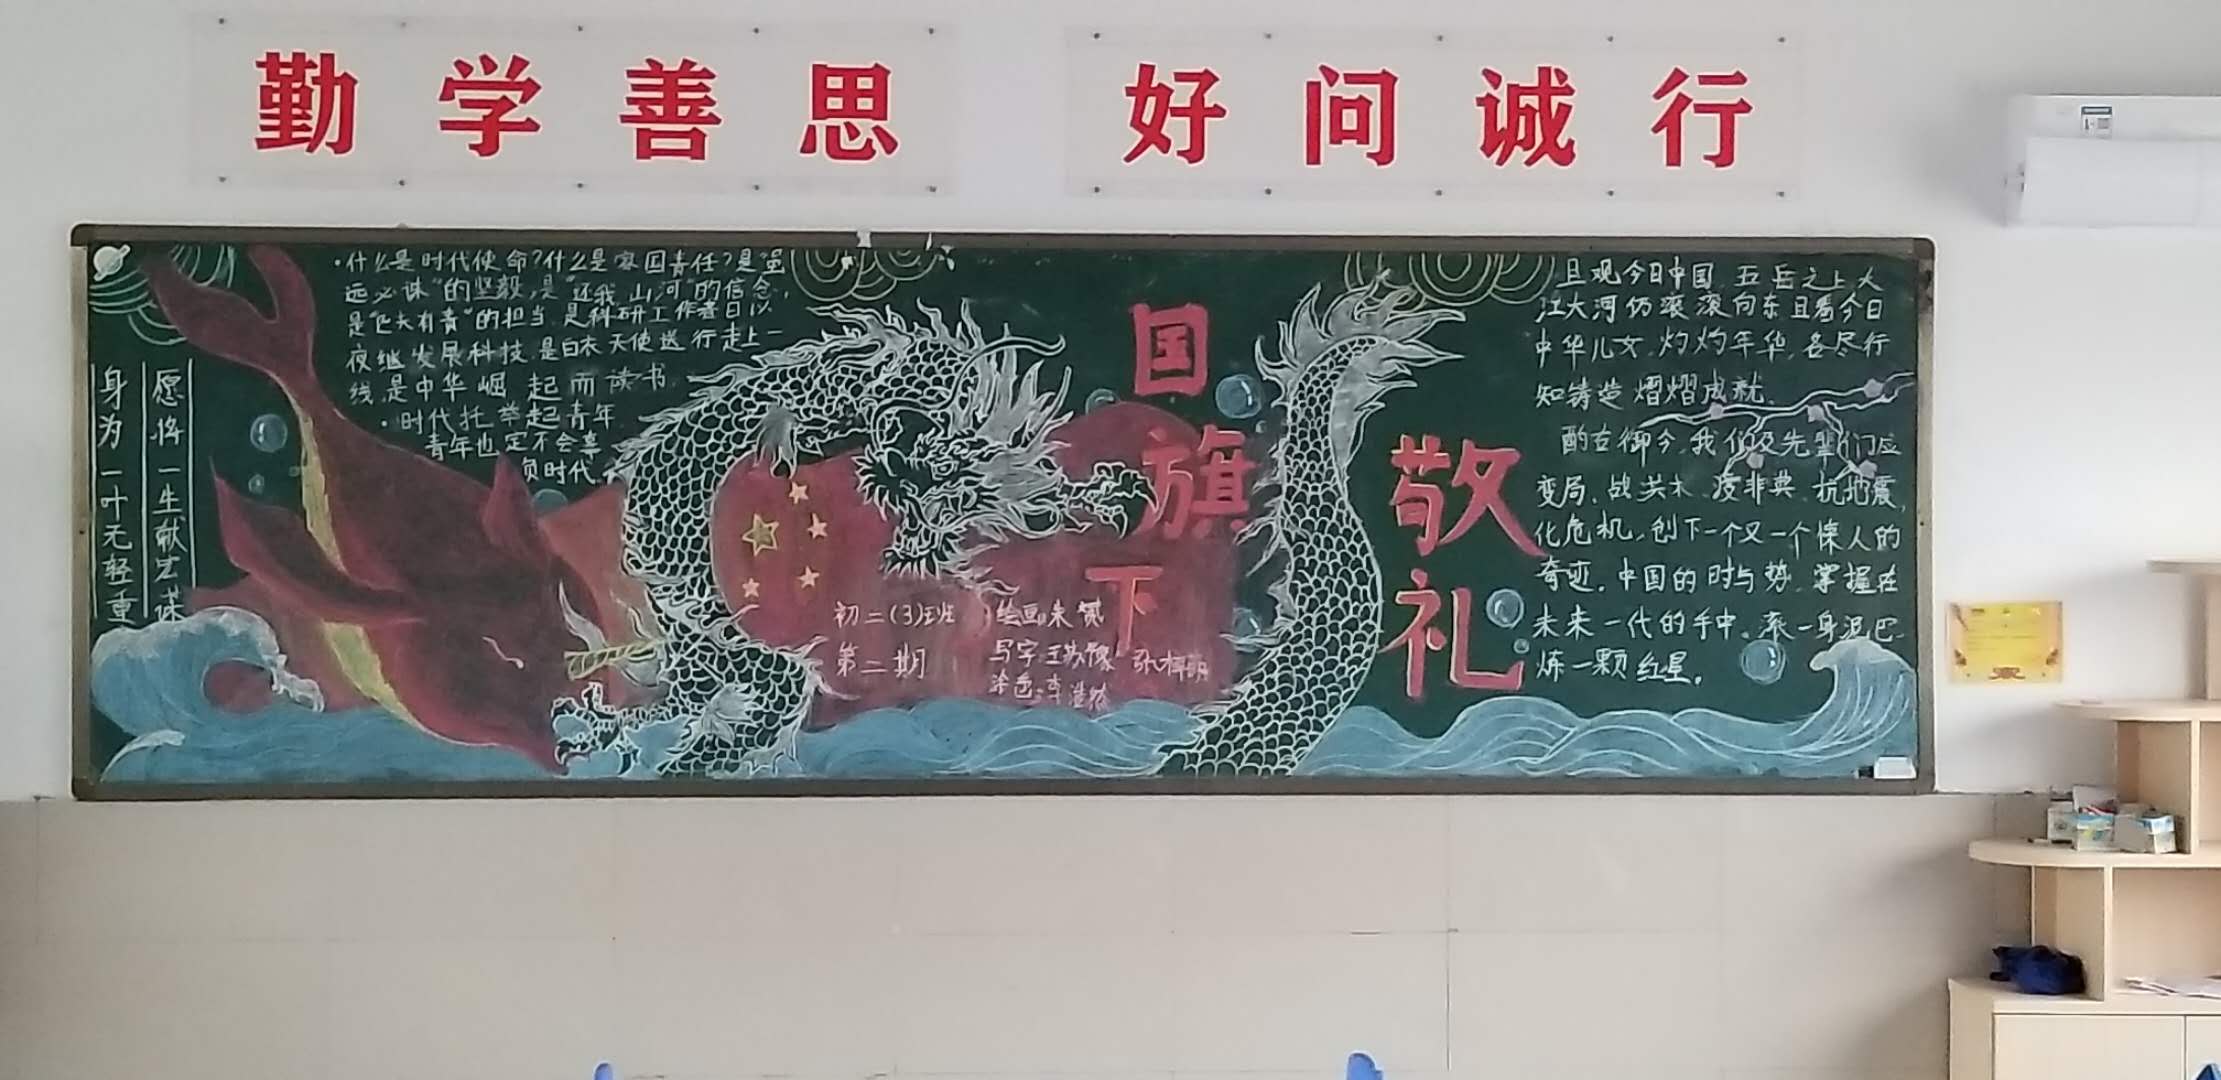 勤学善思 好问诚行
·什么是时代使命?什么是家国责任?是"虽
远必诛"的坚毅,是"还我山河"的信念,
是"匹夫有责"的担当.是科研工作者日以
夜继发展科技.是白衣天使逆行走上一
线.是中华崛起而读书.
·时代托举起青年.
青年也定不会辜
负时代.
愿将一生献宏谋
身为一叶无轻重
国旗下
敬礼
初二(3)班
第二期
绘画:朱
写字:王苏豫 张梓萌
涂色:李浩然
且观今日中国.五岳之上大
江大河仍滚滚向东且看今日
中华儿女.灼灼年华.各尽行
知铸造熠熠成就.
酌古御今.我们及先辈们应
变局.战洪水.疫非典.抗地震,
化危机,创下一个又一个惊人的
奇迹.中国的时与势.掌握在
未来一代的手中。滚一身泥巴.
炼一颗红星。